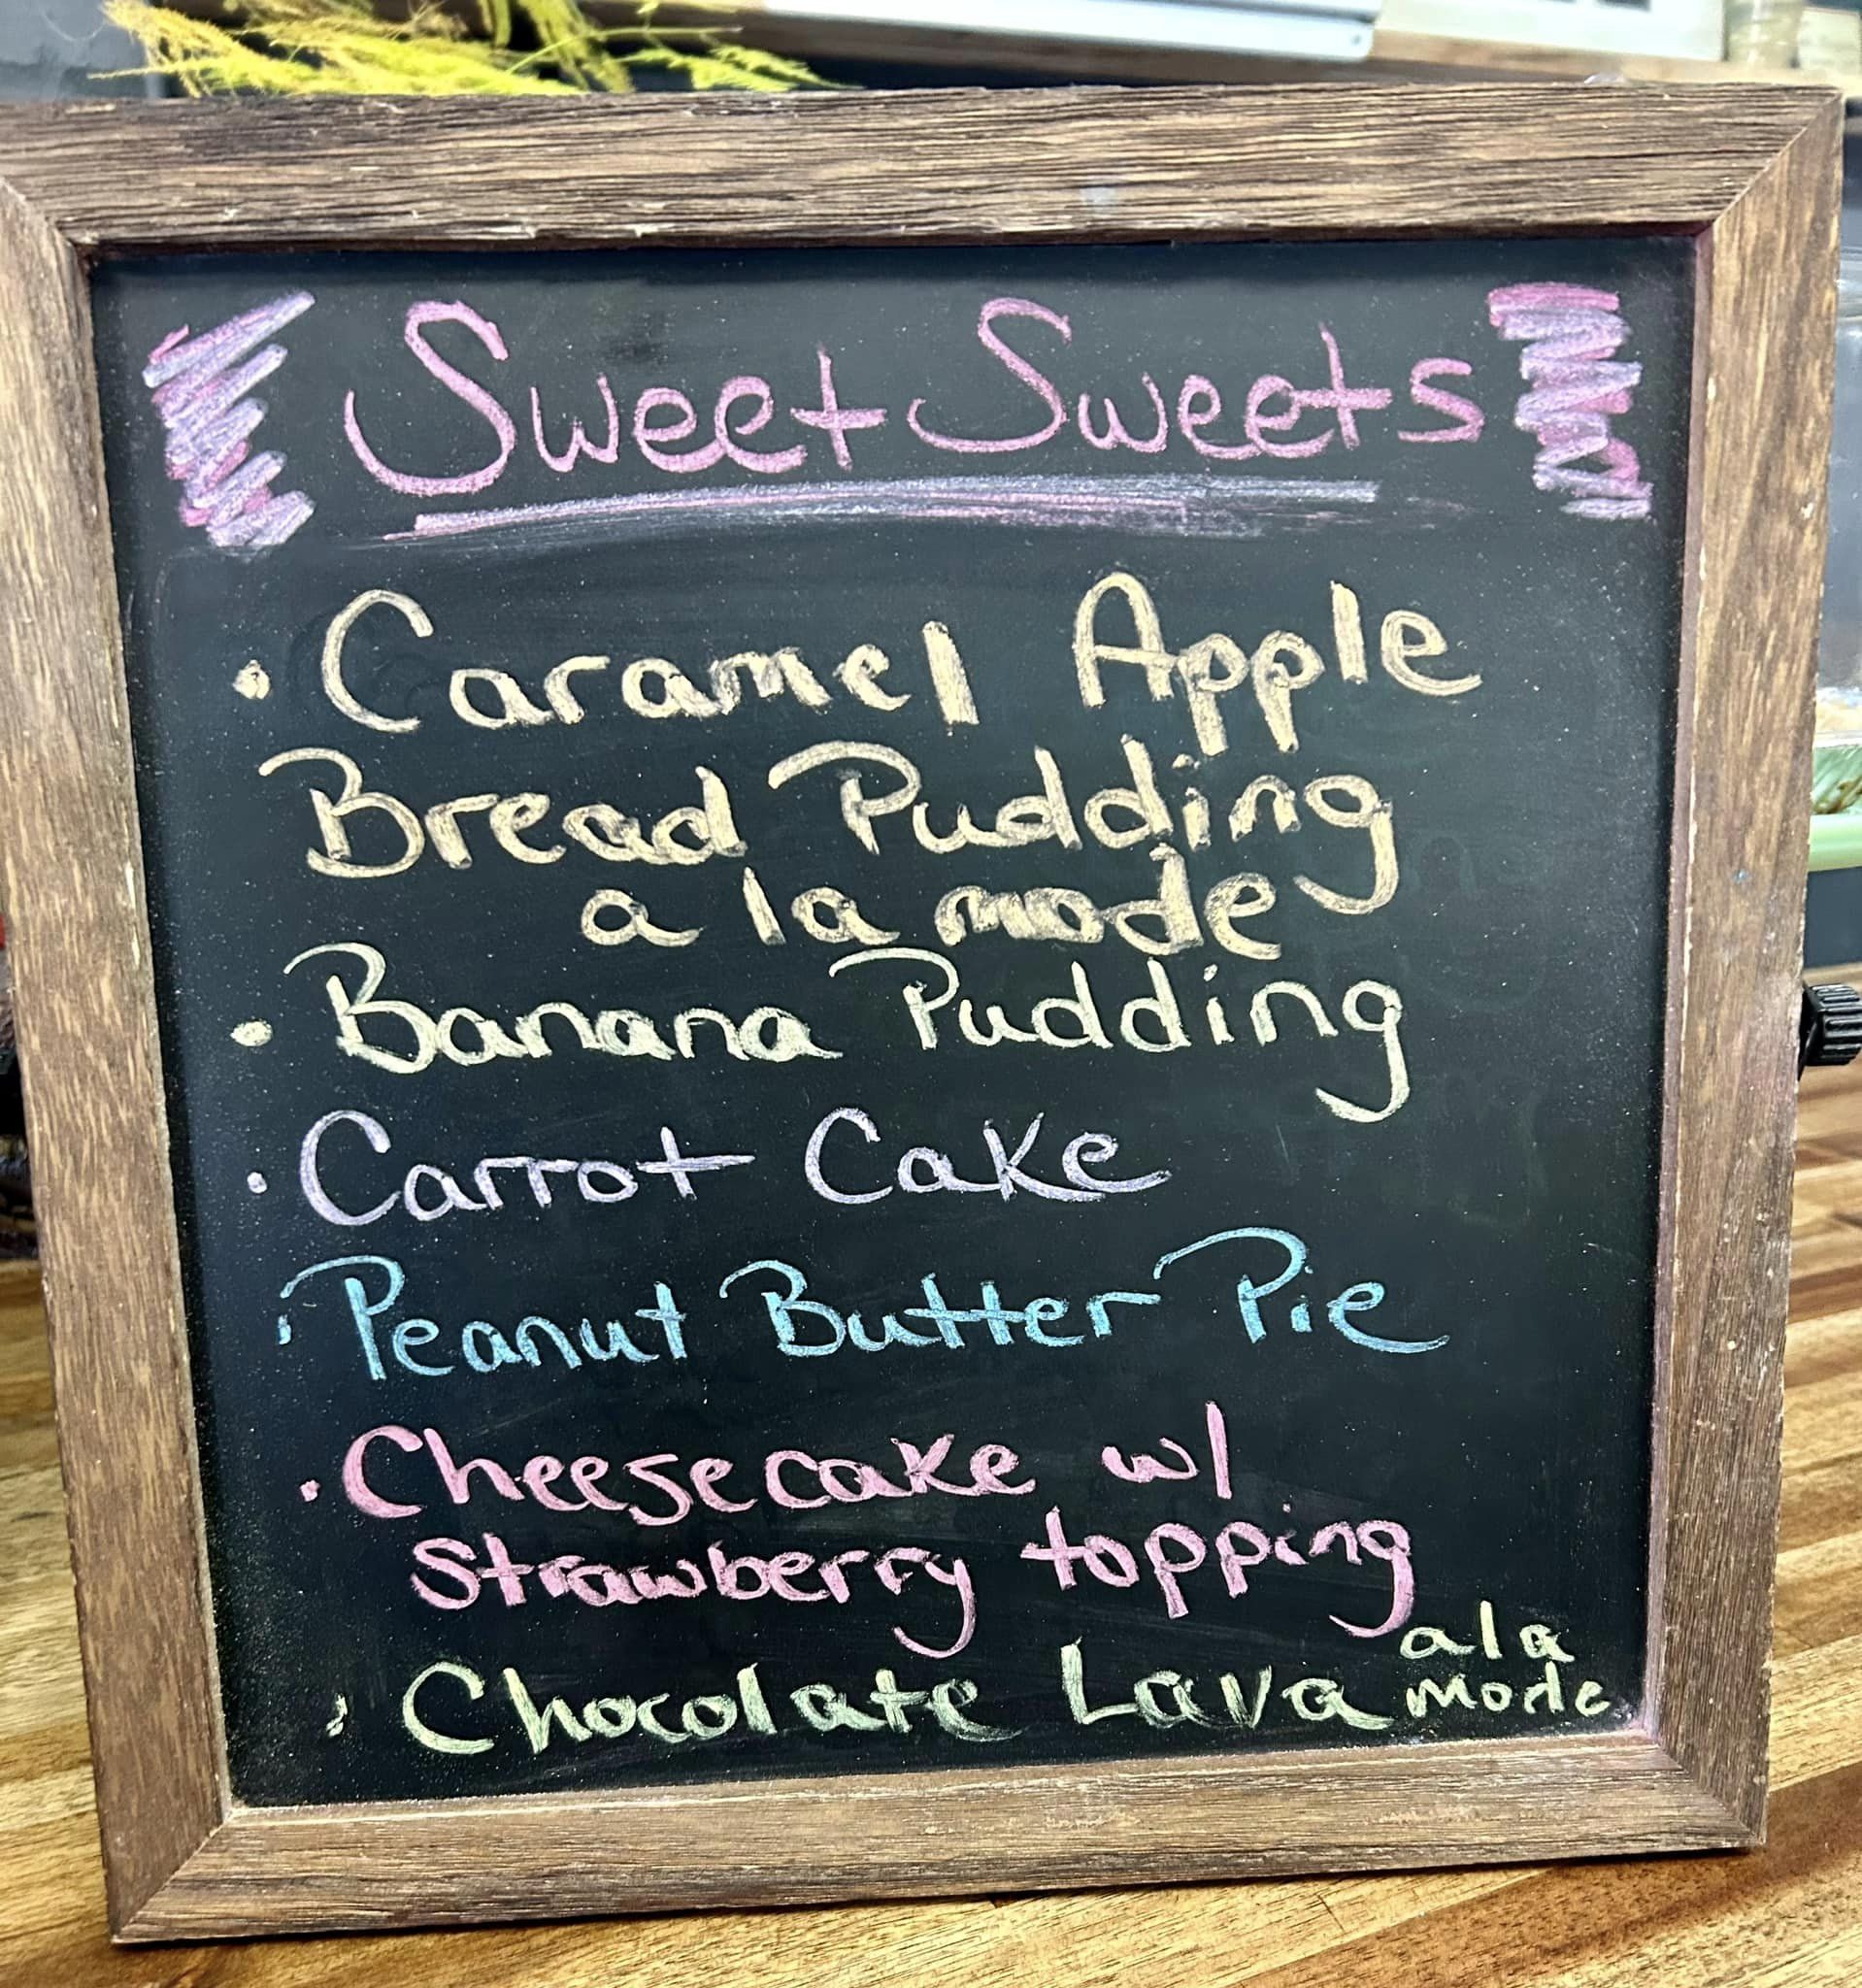 Sweet Sweets
• Caramel Apple
Bread Pudding
a la mode
• Banana Pudding
• Carrot Cake
• Peanut Butter Pie
• Cheesecake w/
strawberry topping
• Chocolate Lava a la
Mode